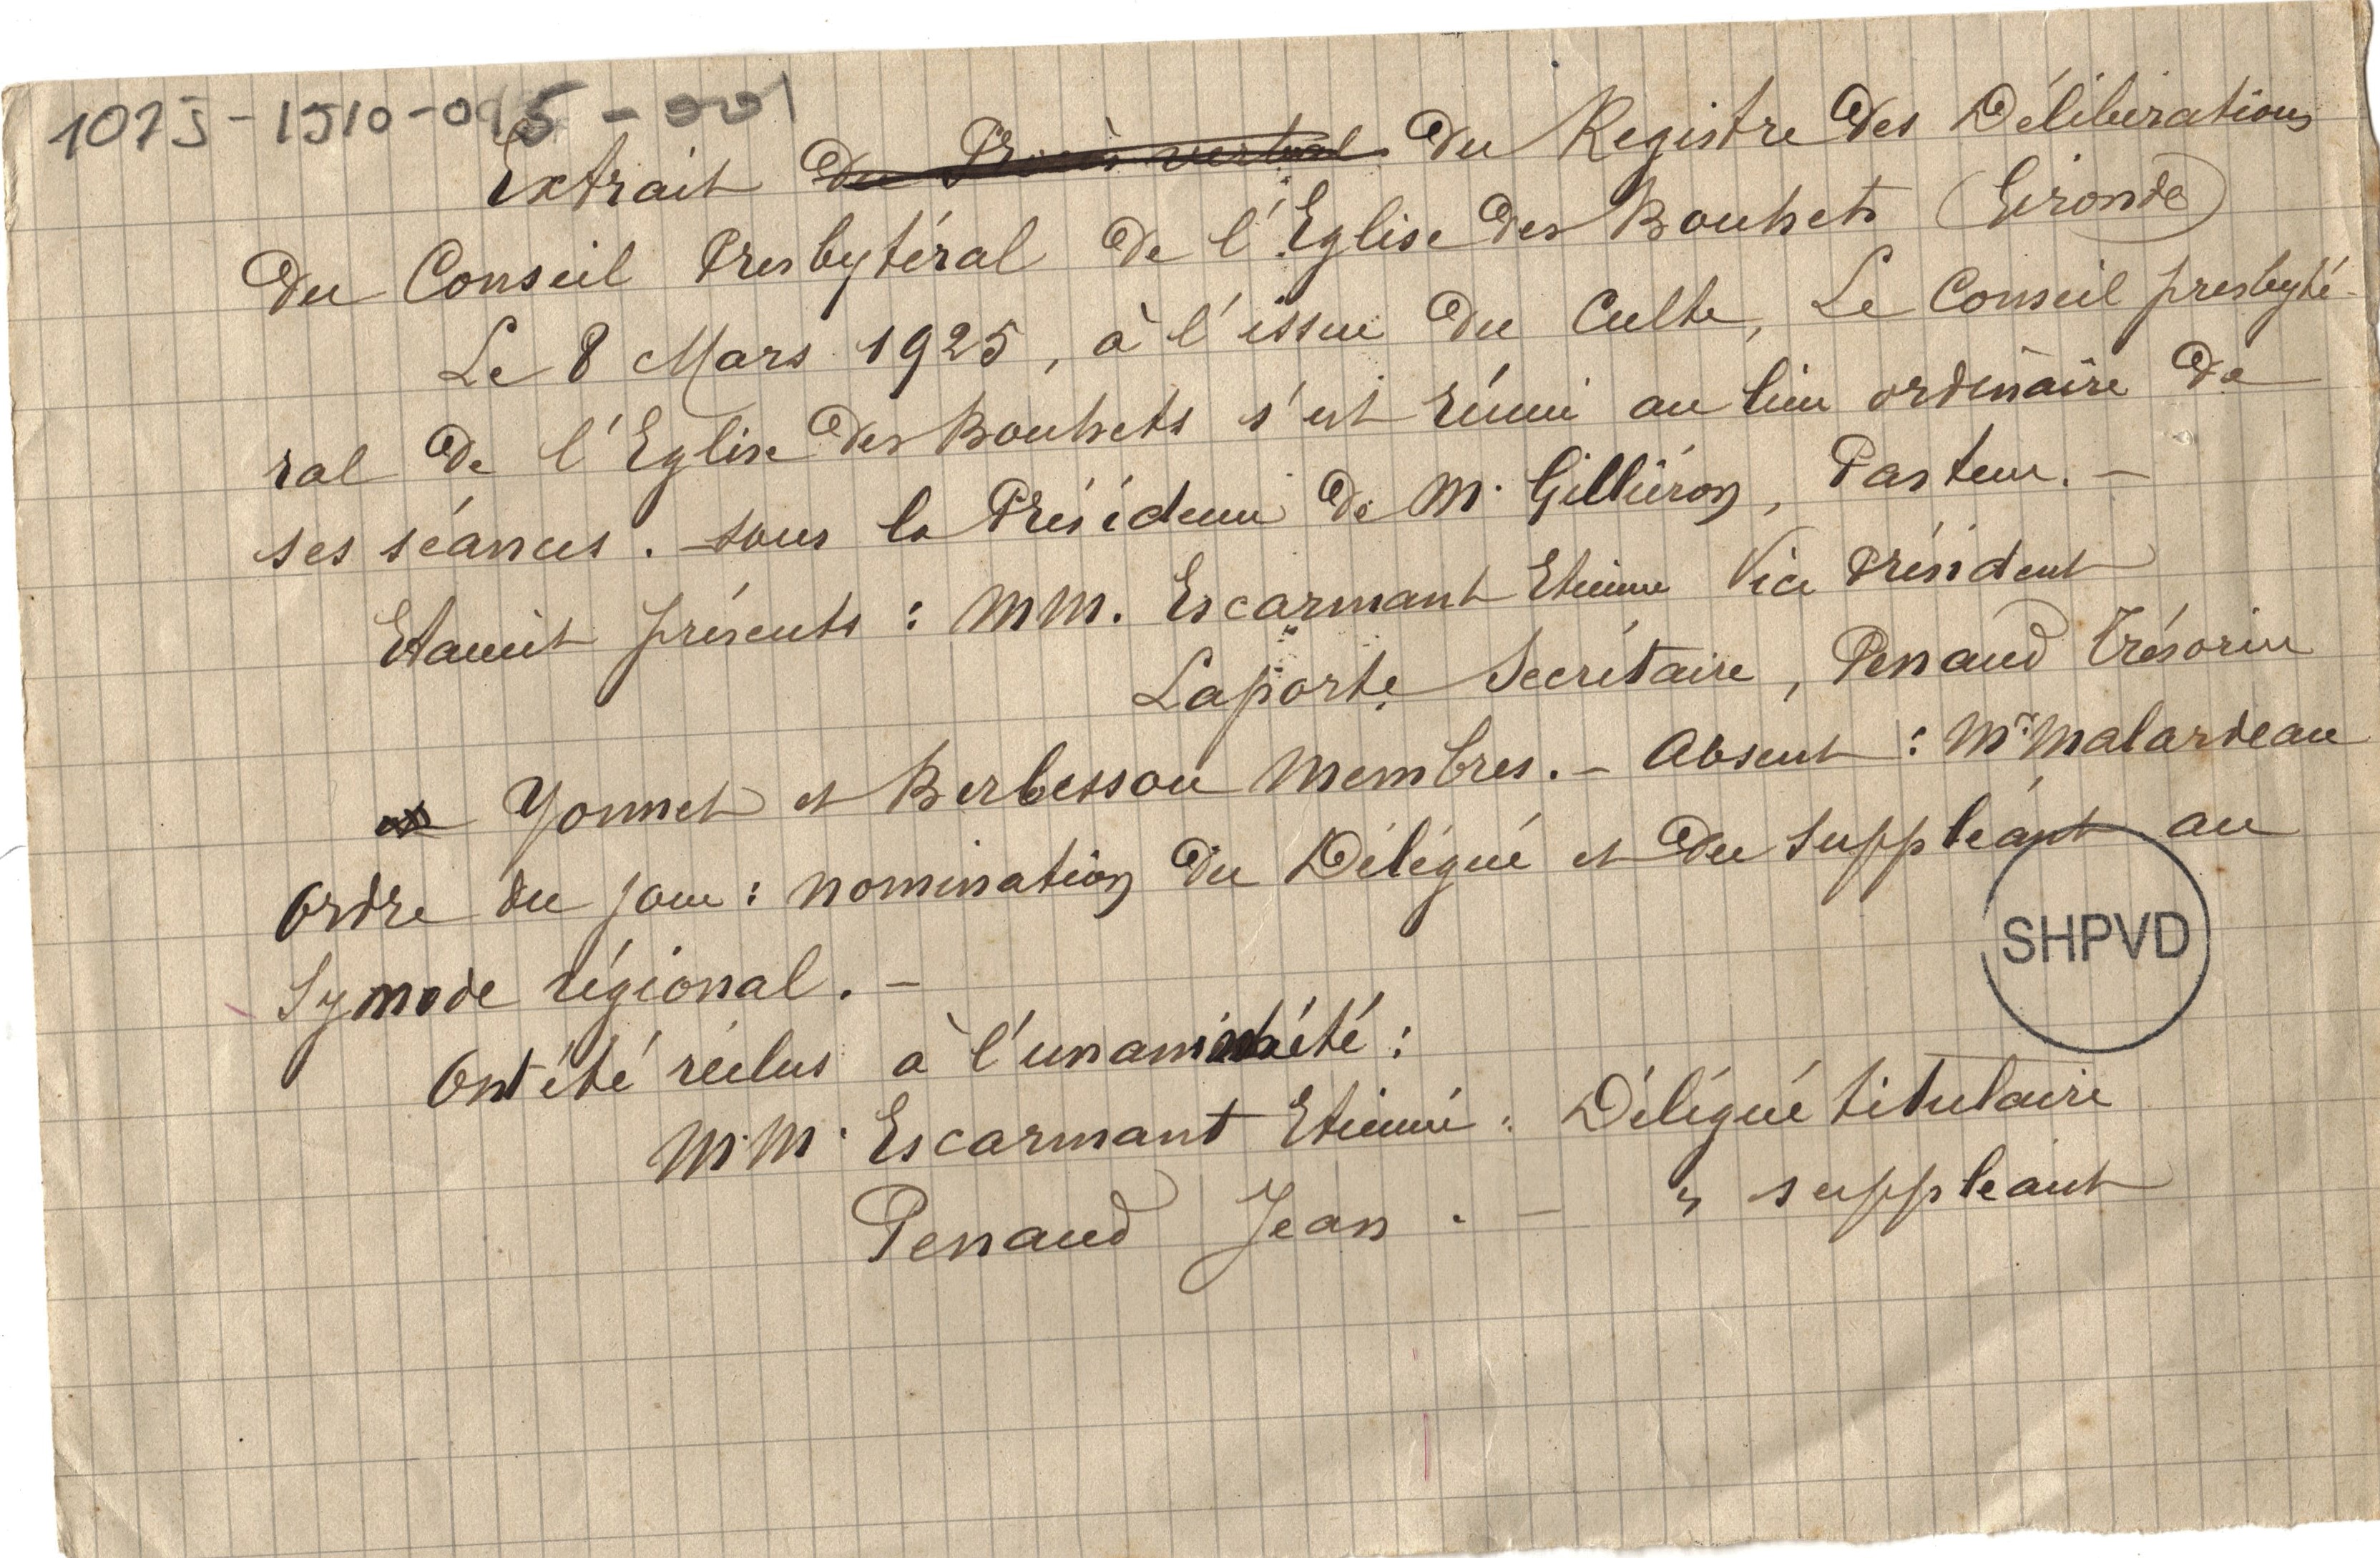 Extrait du Procès verbal du Registre des Délibérations
du Conseil Presbytéral de l'Eglise des Bouhets (Gironde)
Le 8 Mars 1925, à l'issue du Culte, Le Conseil presbyté-
ral de l'Eglise des Bouhets s'est réuni au lieu ordinaire de
ses séances. - sous la Présidence de M. Gilliéron, Pasteur. -
Etaient présents : MM. Escarmant Etienne Vice Président
Laporte Secrétaire, Penaud Trésorier
Yonnet et Berbesson Membres. - Absent : Mr Malardeau
Ordre du jour : nomination du Délégué et du suppléant au
SHPVD
Synode régional. -
Ont été réélus à l'unanimité :
MM. Escarmant Etienne : Délégué titulaire
Penaud Jean . - " suppléant